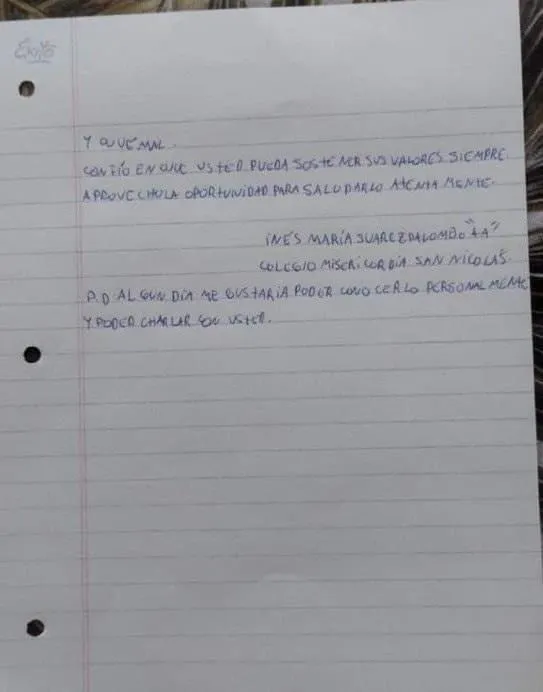 Éxito
Y QUÉ MAL.
CONFÍO EN QUE USTED PUEDA SOSTENER SUS VALORES SIEMPRE.
APROVECHO LA OPORTUNIDAD PARA SALUDARLO ATENTAMENTE.
INÉS MARÍA SUAREZ PALOMBO "4A"
COLEGIO MISERICORDIA SAN NICOLAS.
P.D ALGUN DÍA ME GUSTARÍA PODER CONOCERLO PERSONALMENTE
Y PODER CHARLAR CON USTED.